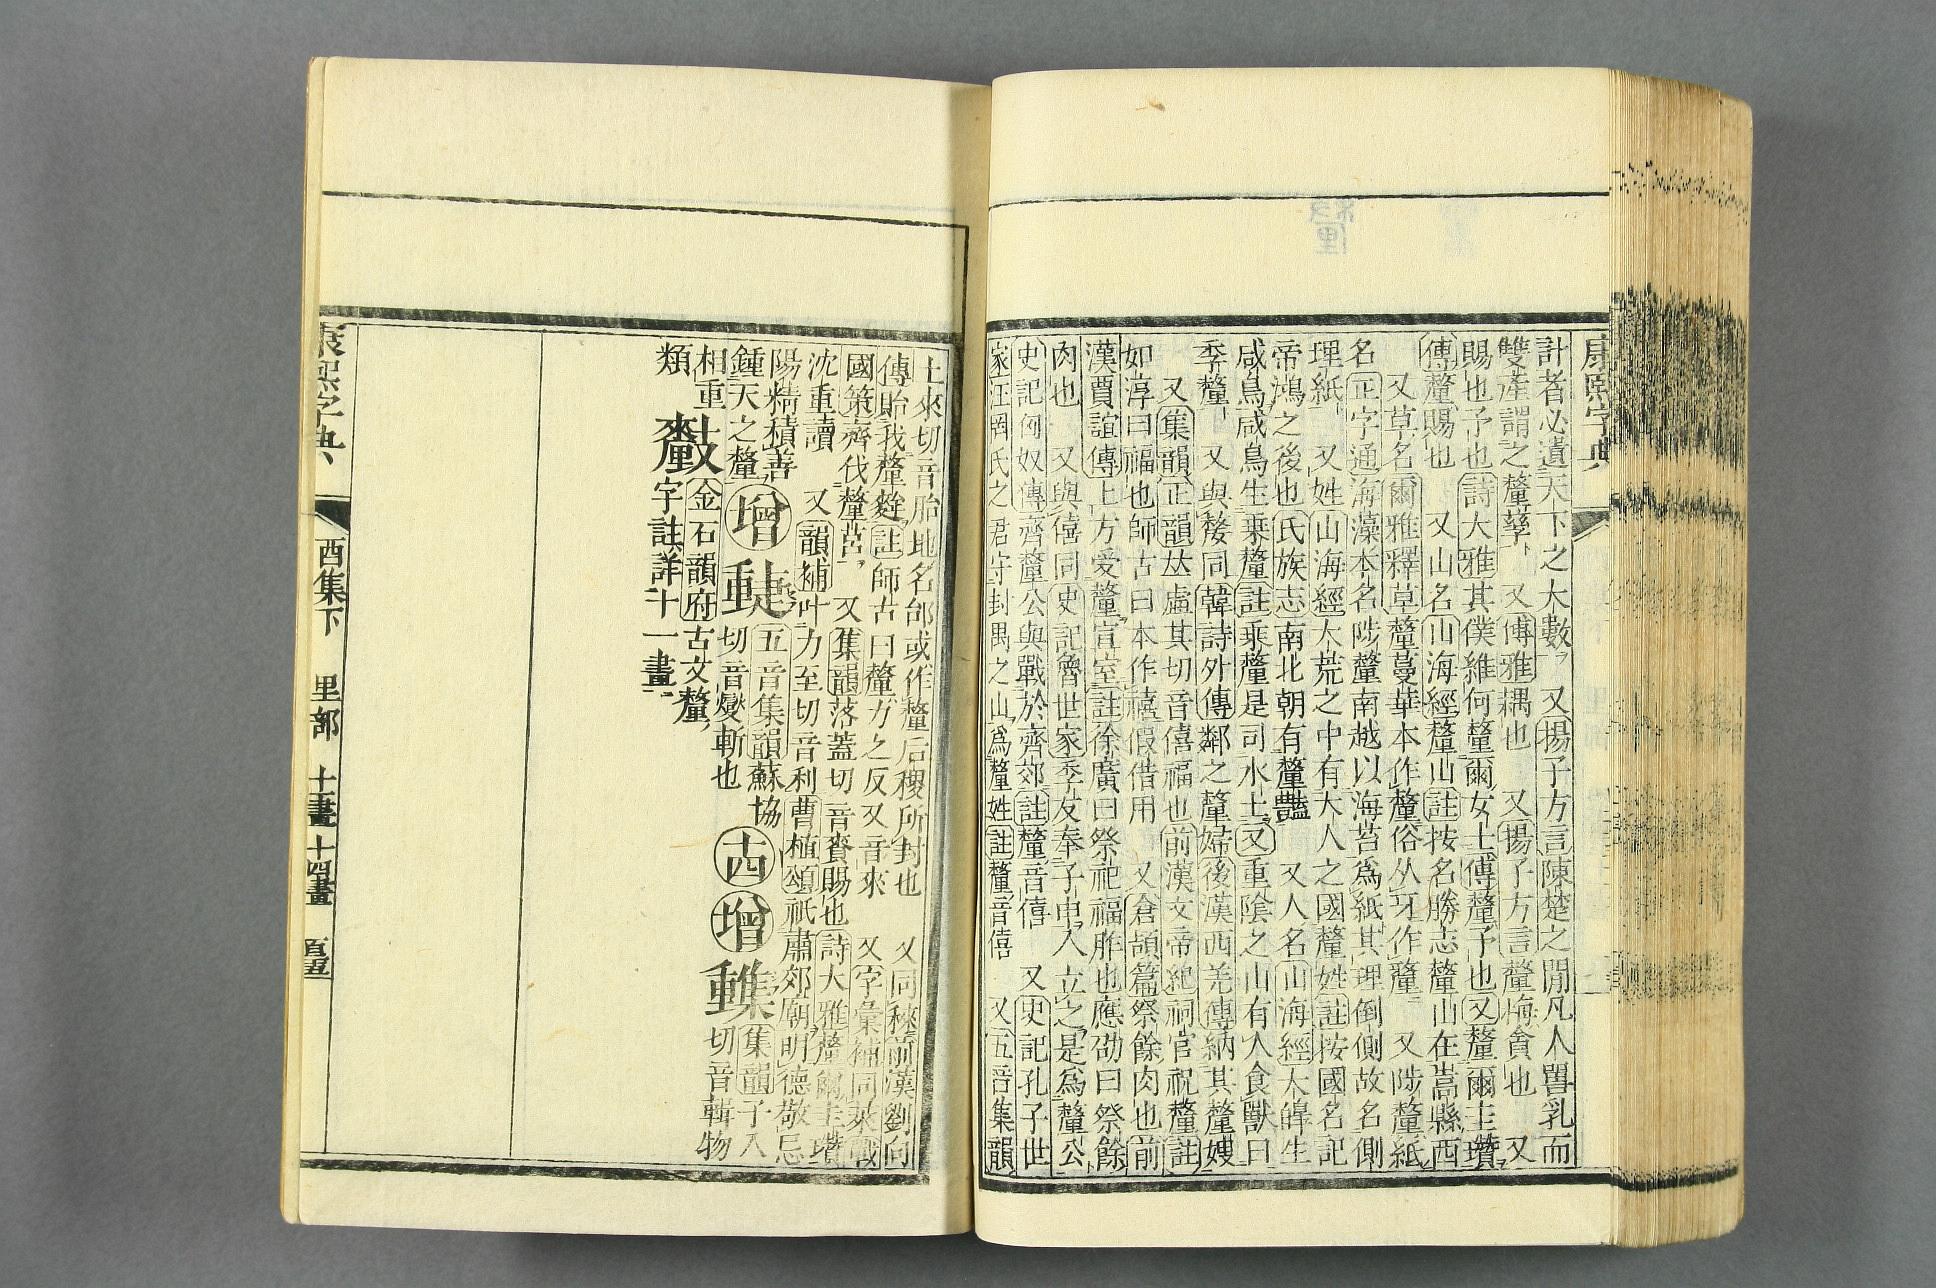 康熙字典
計者必遺天下之大數 又揚子方言陳楚之閒凡人嘼乳而
雙產謂之釐孳 又博雅耦也 又揚子方言釐梅貪也 又
賜也予也詩大雅其僕維何釐爾女士傳釐予也又釐爾圭瓚
傳釐賜也 又山名山海經釐山註按名勝志釐山在嵩縣西
又草名爾雅釋草釐蔓華本作釐俗从牙作釐 又陟釐紙
名正字通海藻本名陟釐南越以海苔爲紙其理倒側故名側
理紙 又姓山海經大荒之中有大人之國釐姓註按國名記
帝鴻之後也氏族志南北朝有釐豔 又人名山海經大皥生
咸鳥咸鳥生乗釐註乗釐是司水土又重陰之山有人食獸曰
季釐 又與嫠同韓詩外傳鄰之釐婦後漢西羌傳納其釐嫂
又集韻正韻𠀤虛其切音僖福也前漢文帝紀祠官祝釐註
如淳曰福也師古曰本作禧假借用 又倉頡篇祭餘肉也前
漢賈誼傳上方受釐宣室註徐廣曰祭祀福胙也應劭曰祭餘
肉也 又與僖同史記魯世家季友奉子申入立之是爲釐公
史記匈奴傳齊釐公與戰於齊郊註釐音僖 又史記孔子世
家汪罔氏之君守封禺之山爲釐姓註釐音僖 又五音集韻
土來切音胎地名邰或作釐后稷所封也 又同䅘前漢劉向
傳貽我釐麰註師古曰釐力之反又音來 又字彙補同萊戰
國策齊伐釐莒 又集韻落蓋切音賚賜也詩大雅釐爾圭瓚
沈重讀 又韻補叶力至切音利曹植頌祇肅郊廟明德敬忌
陽精積善
鍾天之釐
增
五音集韻蘇協
切音燮斬也
十四
增
集韻子入
切音輯物
相重
類
金石韻府古文釐
字註詳十一畫
康熙字典
酉集下 里部 十一畫 十四畫